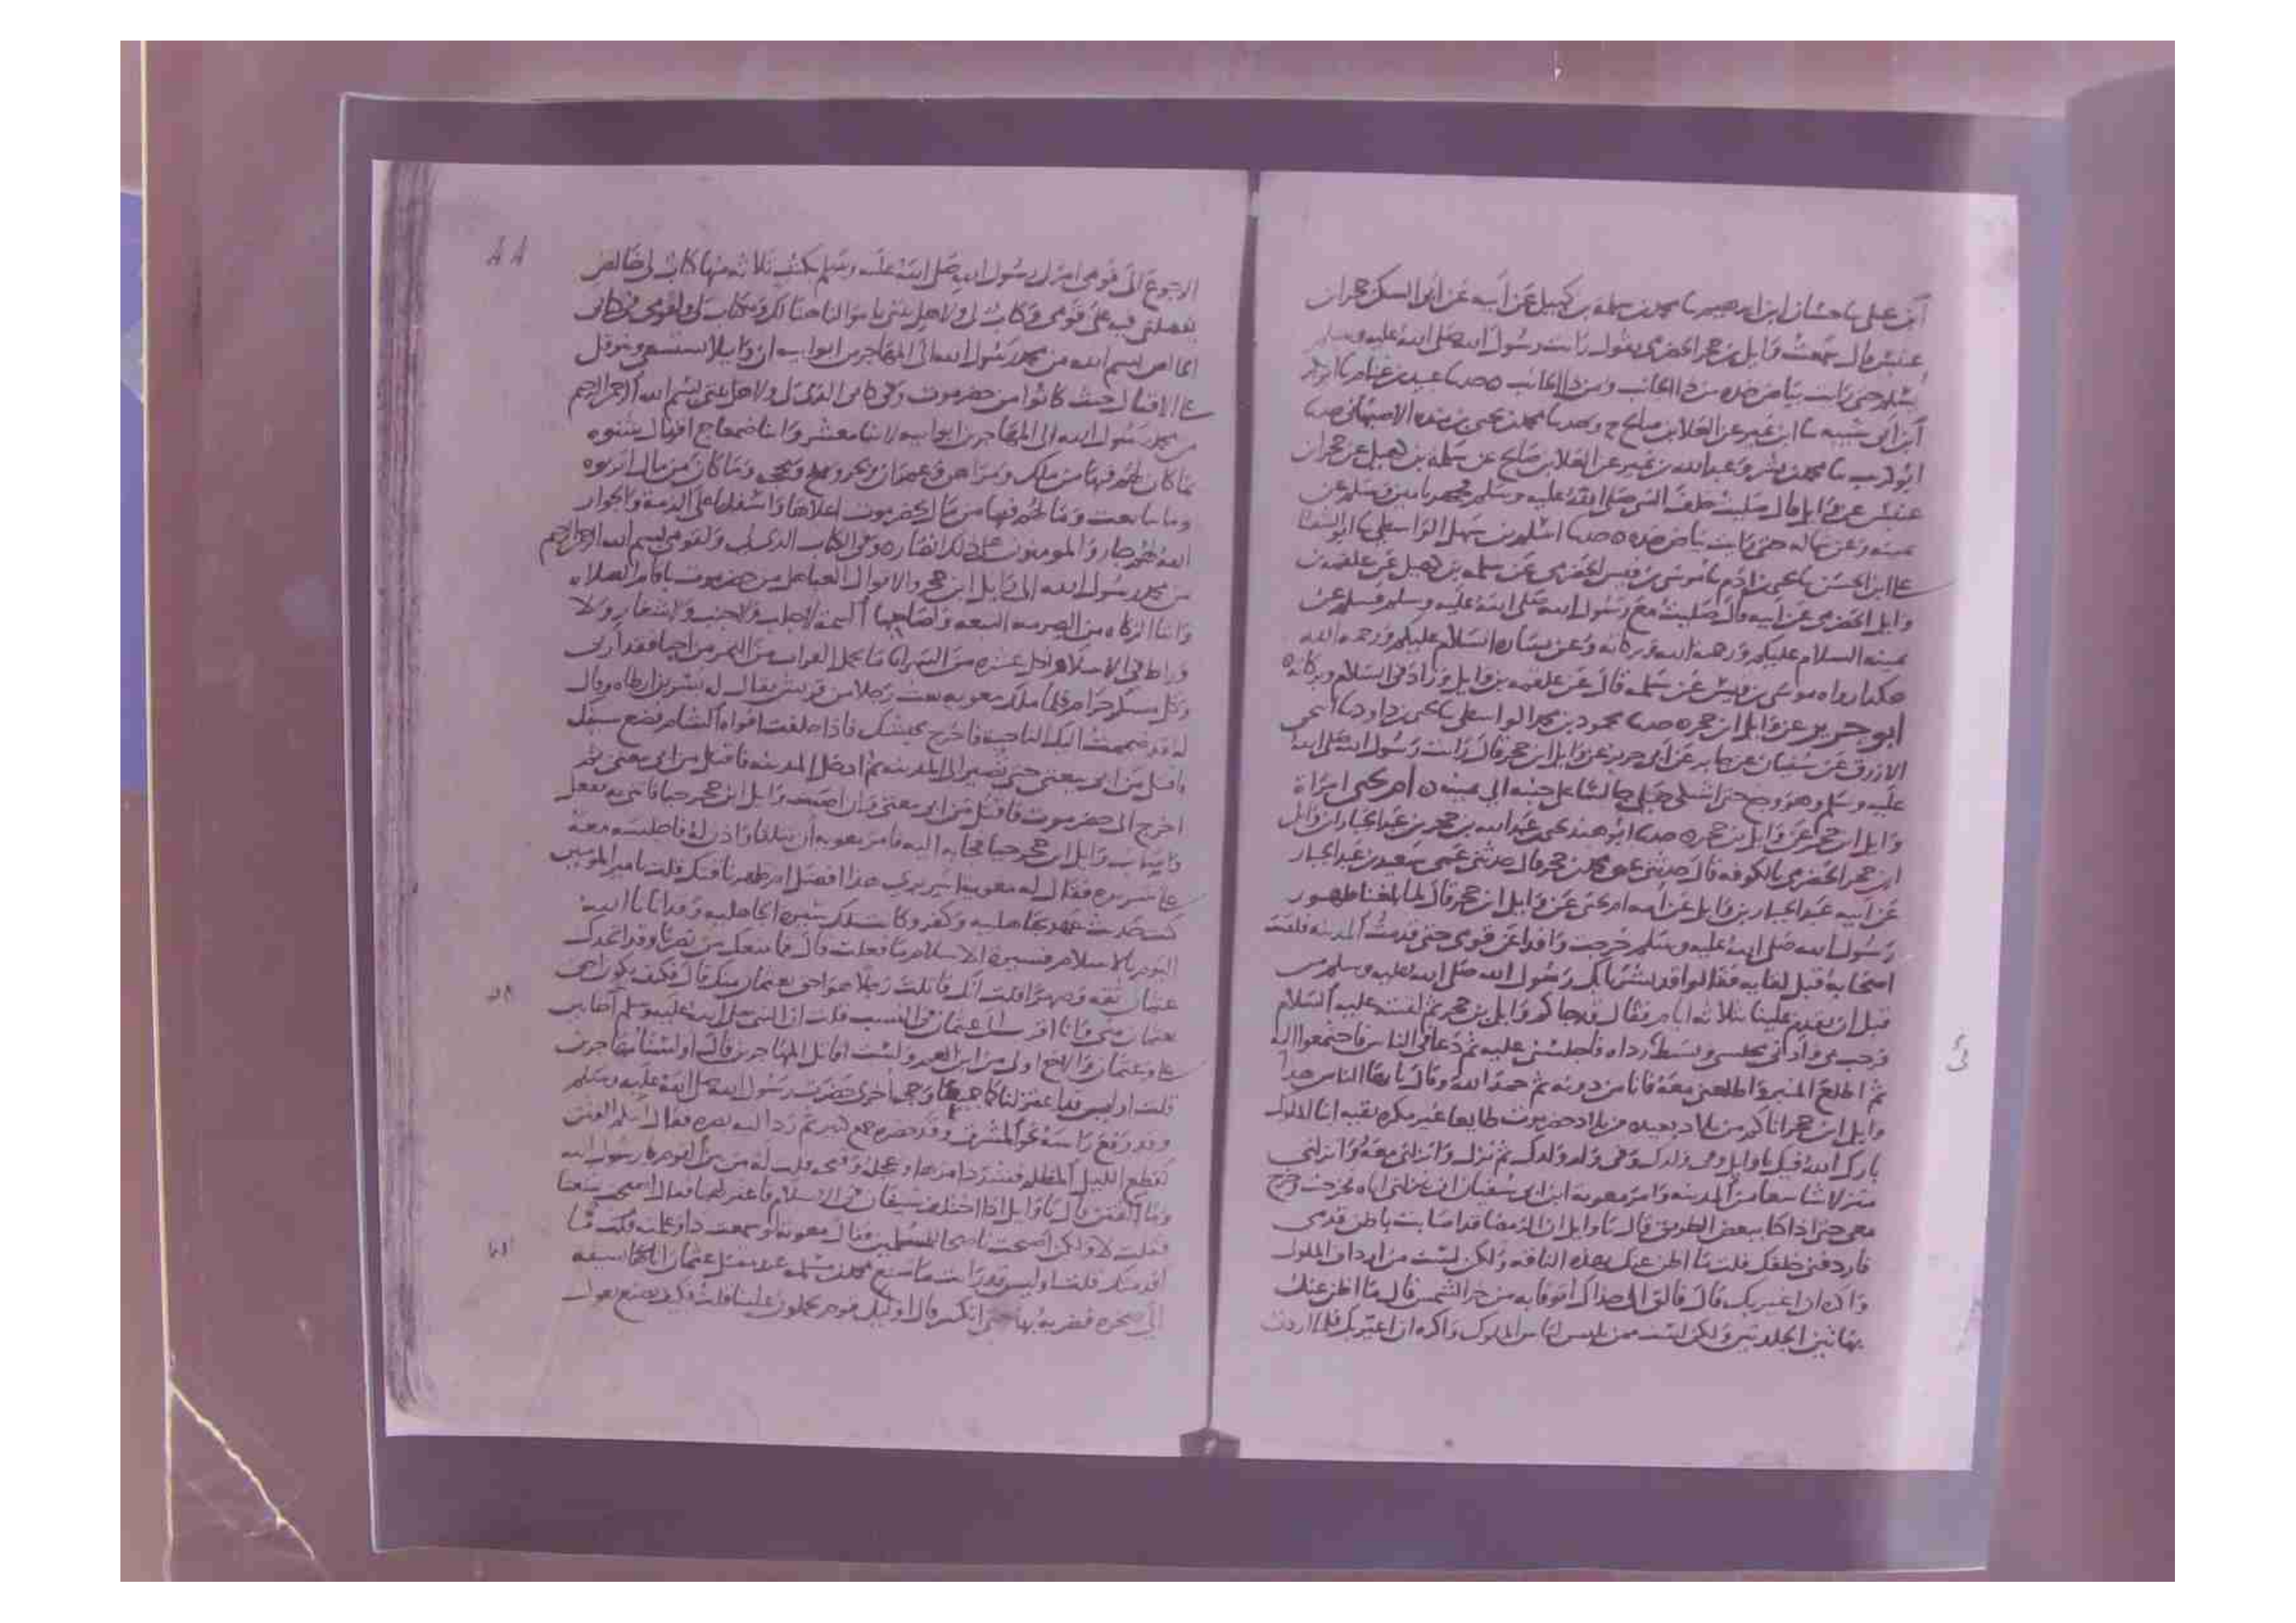 ابن علي با حسان ابن ابرهيم با محمد بن سلمه بن كهيل عن ابيه عن ابي السكن حجر ابن
عنبس قال سمعت وايل بن حجر الحضرمي يقول رايت رسول الله صلى الله عليه وسلم
يسلم حتى رايت بياض خده من ذا الجانب ومن ذا الجانب ه حدثنا عبيد بن غنام با ابو بكر
ابن ابي شيبه با ابن نمير عن العلا بن صالح ح وحدثنا محمد بن يحيى بن منده الاصبهاني حدثنا
ابو كريب با محمد بن بشر وعبد الله بن نمير عن العلا بن صالح عن سلمه بن كهيل عن حجر ابن
عنبس عن وايل قال صليت خلف النبي صلى الله عليه وسلم فجهر بامين وسلم عن
يمينه وعن شماله حتى رايت بياض خده ه حدثنا اسلم بن سهل الواسطي با ابو الشعثا
علي ابن الحسن با يحيى بن ادم با موسى بن قيس الحضرمي عن سلمه بن كهيل عن علقمه بن
وايل الحضرمي عن ابيه قال صليت مع رسول الله صلى الله عليه وسلم فسلم عن
يمينه السلام عليكم ورحمه الله وبركاته وعن يساره السلام عليكم ورحمه الله
هكذا رواه موسى بن قيس عن سلمه قال عن علقمه بن وايل وزاد في السلام وبركاته
ابو حريز عن وايل ابن حجر ه حدثنا محمود بن محمد الواسطي با يحيى بن داود با اسحق
الازرق عن سفيان عن جابر عن ابي حريز عن وايل ابن حجر قال رايت رسول الله صلى الله
عليه وسلم وهو وضع حين اشتكى على جنبه اليمينه ه ام يحيى امراة
وايل ابن حجر عن وايل بن حجر ه حدثنا ابو هند يحيى بن عبد الله بن حجر بن عبد الجبار ابن وايل
ابن حجر الحضرمي بالكوفه قال حدثني عمي محمد بن حجر قال حدثني عمي سعيد بن عبد الجبار
عن ابيه عبد الجبار بن وايل عن امه ام يحيى عن وايل ابن حجر قال لما بلغنا ظهور
رسول الله صلى الله عليه وسلم خرجت وافدا عن قومي حتى قدمت المدينه فلقيت
اصحابه قبل لقايه فقالوا قد بشرنا بك رسول الله صلى الله عليه وسلم من
قبل ان تقدم علينا بثلاثه ايام فقال قد جاكم وايل بن حجر ثم لقيته عليه السلام
فرحب بي وادنى مجلسي وبسط لي رداه فاجلسني عليه ثم دعا في الناس فاجتمعوا اليه
ثم اطلع المنبر واطلعني معه وانا من دونه ثم حمد الله وقال يايها الناس هذا
وايل ابن حجر اتاكم من بلاد بعيده من بلاد حضرموت طايعا غير مكره بقيه ابنا الملوك
بارك الله فيك يا وايل وفي ولدك وفي ولد ولدك ثم نزل وانزلني معه وانزلني
منزلا شاسعا من المدينه وامر معويه ابن ابي سفيان ان ينزلني اياه فخرجت وخرج
معي حتى اذا كنا ببعض الطريق قال يا وايل ان الرمضا قد اصابت باطن قدمي
فاردفني خلفك قلت ما اظن عنك بهذه الناقه ولكن لست من ارداف الملوك
واكره ان اعير بك قال فالق الي حذاك اتوقا به من حر الشمس قال ما اظن عنك
بهاتين الجلدتين ولكن لست ممن يلبس لباس الملوك واكره ان اعير بك فلما اردت
الرجوع الى قومي امر لي رسول الله صلى الله عليه وسلم بكتب ثلاثه منها كتاب لي خالص
يفضلني فيه على قومي وكتاب لي ولاهل بيتي باموالنا هنالك وكتاب لي ولقومي في كتابي
الخالص بسم الله من محمد رسول الله الى المهاجر بن ابو اميه ان وايلا يستسعي ويترفل
على الاقيال حيث كانوا من حضرموت وفي كتابي الذي لي ولاهل بيتي بسم الله الرحمن الرحيم
من محمد رسول الله الى المهاجر بن ابو اميه لابنا معشر وابنا ضمعاج اقيال شنوه
بما كان لهم فيها من ملك ومزاهر وعمران وبحر وملح ومحجر وما كان من مال اترثوه
وما بايعت وما لهم فيها من مال بحضرموت اعلاها واسفلها على الذمه والجوار
الله لهم جار والمومنون على ذلك انصار ه وفي الكتاب الذي لي ولقومي بسم الله الرحمن الرحيم
من محمد رسول الله الى وايل ابن حجر والاقوال العباهل من حضرموت باقام الصلاه
وايتا الزكاه من الصرمه التيعه ولصاحبها التيمه لا جلب ولا جنب ولا شغار ولا
وراط في الاسلام لكل عشره من السرايا ما يحمل القراب من التمر من اجبا فقد اربى
وكل مسكر حرام فلما ملك معويه بعث رجلا من قريش يقال له بشر بن ارطاه وقال
له قد ضممت اليك الناحيه فاخرج بجيشك فاذا خلفت افواه الشام فضع سيفك
فاقتل من ابى بيعتي حتى تصير الى المدينه ثم ادخل المدينه فاقتل من ابى بيعتي ثم
اخرج الى حضرموت فاقتل من ابى بيعتي وان اصبت وايل ابن حجر حيا فاتني به ففعل
فاصاب وايل ابن حجر حيا فجا به اليه فامر معويه ان يتلقا واذن له فاجلسه معه
على سريره فقال له معويه اسريري هذا افضل ام ظهر ناقتك فقلت يا امير المومنين
كنت حديث عهد بجاهليه وكفر وكانت تلك سيره الجاهليه وقد اتانا الله
اليوم بالاسلام فسيره الاسلام ما فعلت قال فما منعك من نصرنا وقد اتخذك
عثمان ثقه وصهرا قلت انك قاتلت رجلا هو احق بعثمان منك قال فكيف يكون احق
بعثمان مني وانا اقرب الى عثمان في النسب قلت ان النبي صلى الله عليه وسلم اخا بين
علي وعثمان والاخ اولى من ابن العم ولست اقاتل المهاجرين قال او لسنا مهاجرين
قلت او ليس قد اعتزلناكما جميعا وحجه اخرى حضرت رسول الله صلى الله عليه وسلم
وقد رفع راسه نحو المشرق وقد حضره جمع كبير ثم رد اليه بصره فقال اتتكم الفتن
كقطع الليل المظلم فشدد امرها وعجله وقبحه فقلت له من بين القوم يا رسول الله
وما الفتن قال يا وايل اذا اختلف سيفان في الاسلام فاعتزلهما فقال اصبحت شيعيا
فقلت لا ولكن اصبحت ناصحا للمسلمين فقال معويه لو سمعت ذا وعلمته فكت ما
اقدمتك قلت او ليس قد رايت ما صنع محمد بن مسلمه عند مقتل عثمان انتهى بسيفه
الى صخره فضربه بها حتى انكسر قال اوليك قوم يحملون علينا قلت فكيف تصنع بقول